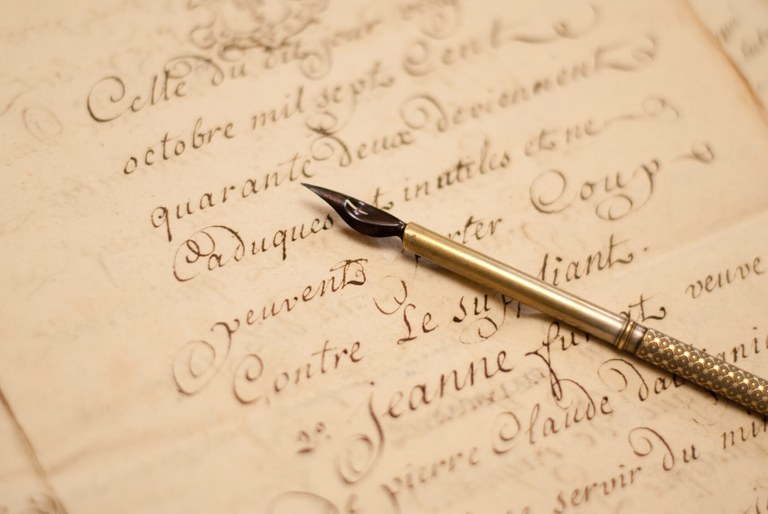 Celle du du jour
octobre mil sept Cent
quarante deux deviennent
Caduques et inutiles et ne
peuvent porter Coup
Contre Le su liant.
2º. Jeanne veuve
pierre Claude
servir du